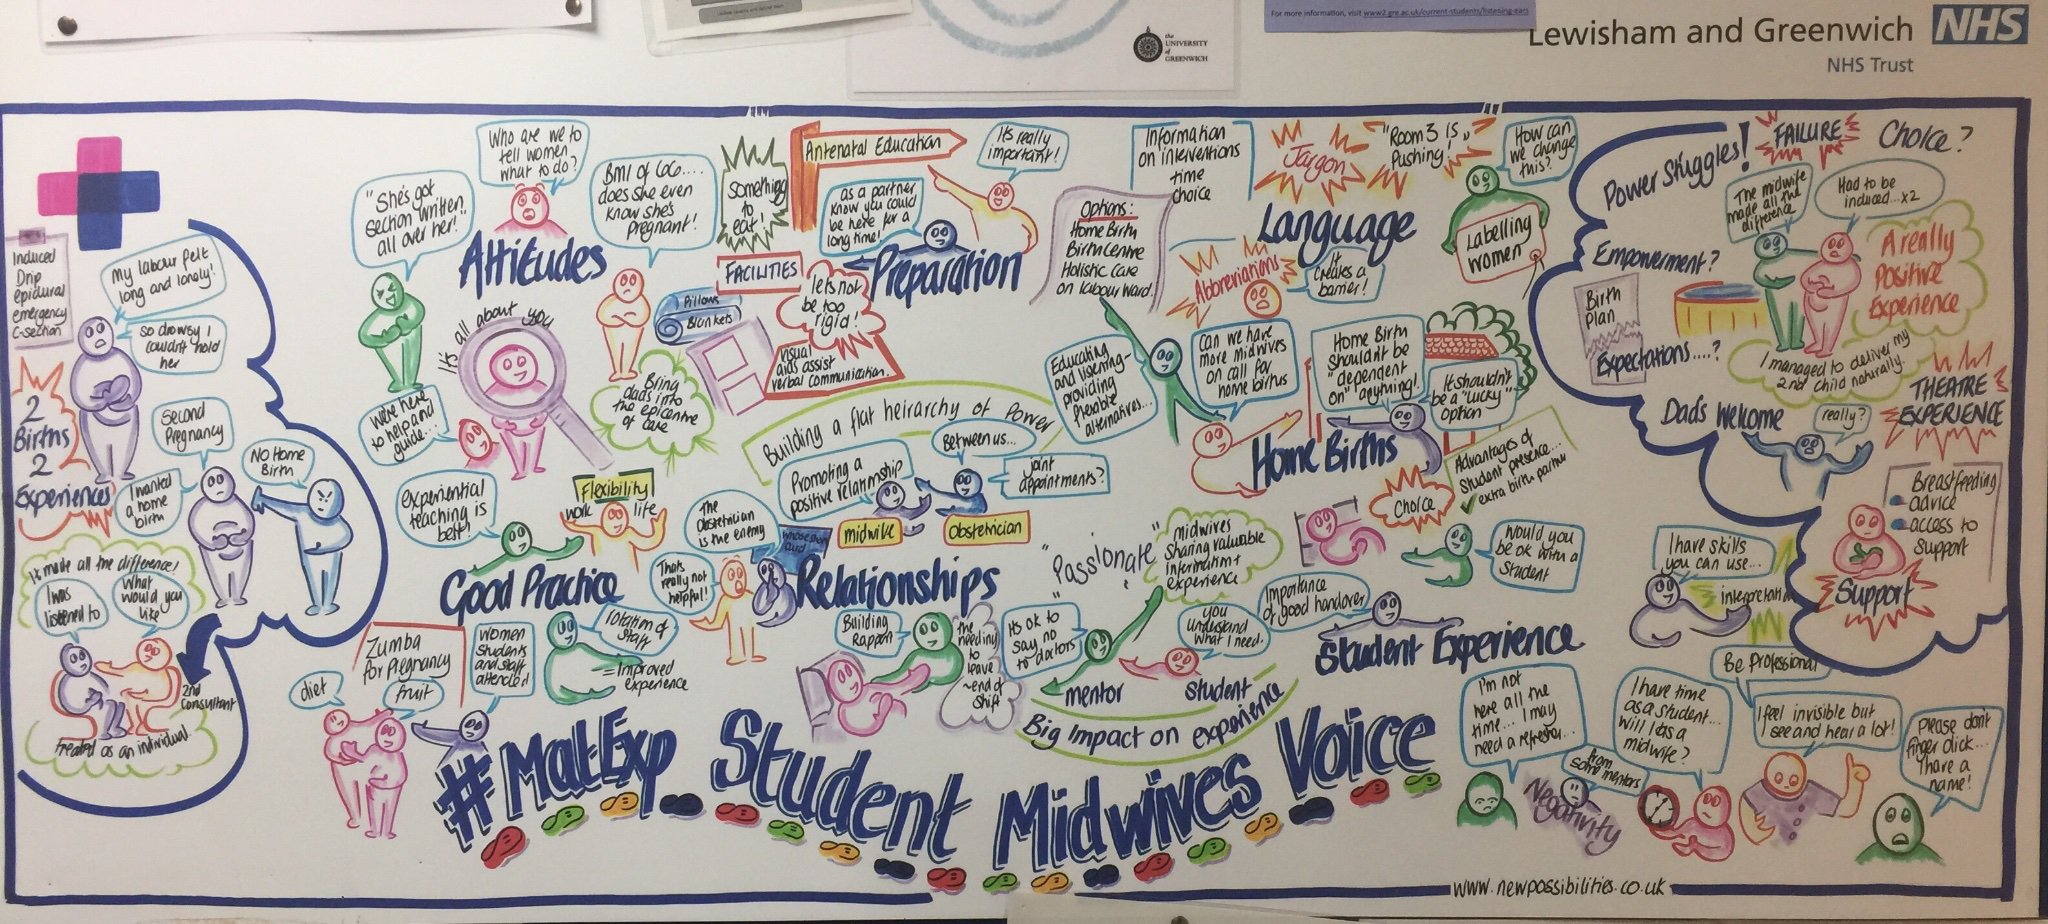 For more information, visit www2.gre.ac.uk/current-students/listening-ears
the
UNIVERSITY
of
GREENWICH
Lewisham and Greenwich
NHS
NHS Trust
Induced
Drip
epidural
emergency
C-section
My labour felt
long and lonely!
So drowsy I
couldn't hold
her
2
Births
2
Experiences
Second
Pregnancy
I wanted
a home
birth
NO Home
Birth
It made all the difference!
I was
listened to
What
would you
like
2nd
Consultant
treated as an individual
"She's got
section written
all over her!"
Who are we to
tell women
what to do?
Attitudes
BMI of 60....
does she even
know she's
pregnant!
It's all about you
We're here
to help and
guide...
Something
to
eat!
FACILITIES
Pillows
Blankets
Bring
dads into
the epicentre
of care
Antenatal Education
It's really
important!
as a partner
know you could
be here for a
long time!
Preparation
let's not
be too
rigid!
Visual
aids assist
verbal communication.
Options:
Home Birth
Birth Centre
Holistic Care
on Labour Ward.
Information
on interventions
time
choice
Jargon
"Room 3 is
Pushing!"
How can
we change
this?
Language
Labelling
women
Abbreviations
It
creates a
barrier!
Educating
and listening-
providing
flexable
alternatives...
Can we have
more midwives
on call for
home births
Home Birth
shouldn't be
"dependent
on" anything!
It shouldn't
be a "lucky"
option
Home Births
Choice
Advantages of
Student presence...
✓ extra birth partner
Building a flat heirarchy of Power
Promoting a
positive relationship
Between us...
joint
appointments?
midwife
Obstetrician
experiential
teaching is
best!
Flexibility
work life
Good Practice
The
Obstetrician
is the enemy
Thats
really not
helpful!
Relationships
"Passionate"
midwives
sharing valuable
information+
experience
Would you
be ok with a
student
Zumba
for Pregnancy
diet
fruit
Women
Students
and staff
attended
rotation of
staff
= Improved
experience
Building
Rapport
the
needing
to
leave
~end of
shift
It's ok to
say no
to doctors
you
understand
what I need.
mentor
student
Big Impact on experience
Importance
of good handover
Student Experience
Power Stuggles!
FAILURE
Choice?
The midwife
made all the
difference
Had to be
induced...x2
Empowerment?
A really
Positive
Experience
Birth
Plan
Expectations....?
I managed to deliver my
2nd child naturally.
Dad's Welcome
really?
THEATRE
EXPERIENCE
Breastfeeding
advice
access to
support
Support
I have skills
you can use...
Be professional
I'm not
here all the
time... I may
need a refresher...
Negativity
from
some mentors
I have time
as a student...
will I as a
midwife?
I feel invisible but
I see and hear a lot!
Please don't
finger click...
I have a
name!
#MatExp Student Midwives Voice
www.newpossibilities.co.uk